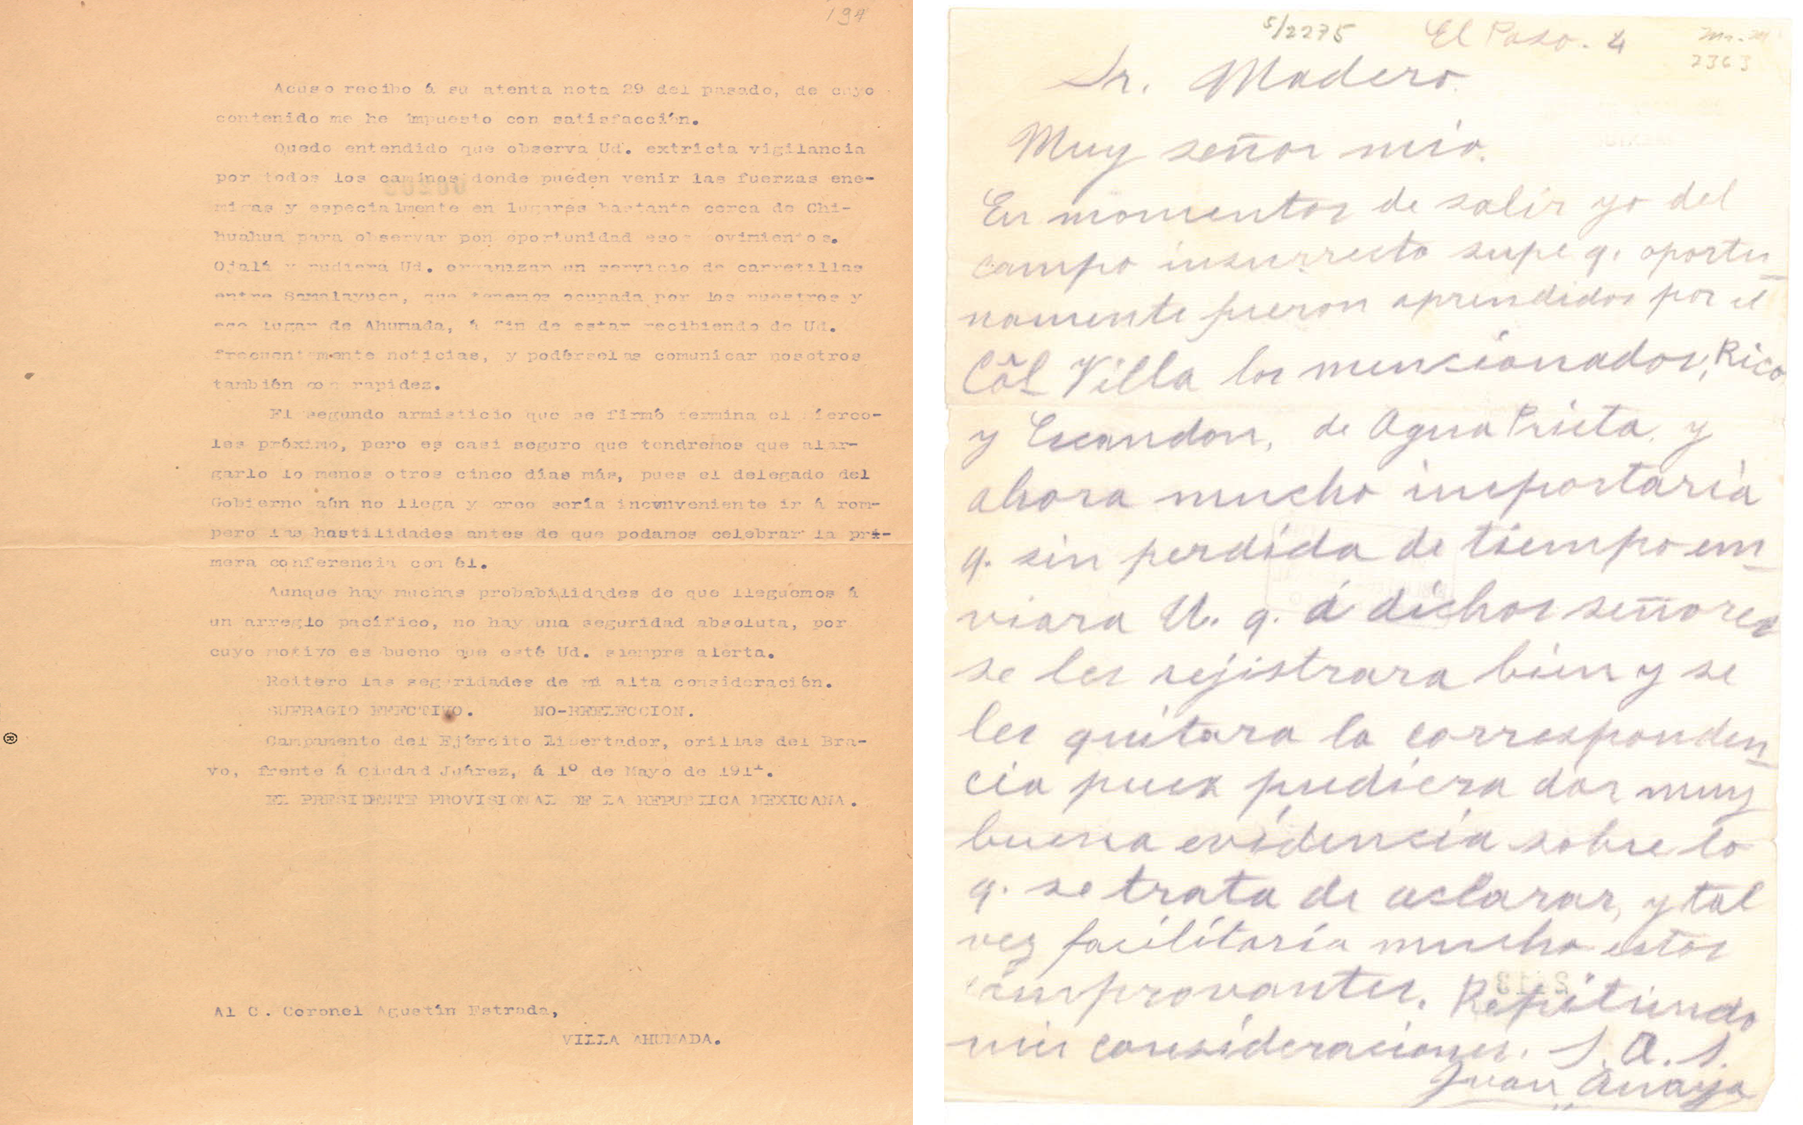 194
Acuso recibo á su atenta nota 29 del pasado, de cuyo
contenido me he impuesto con satisfacción.
Quedo entendido que observa Ud. extricta vigilancia
por todos los caminos donde pueden venir las fuerzas ene-
migas y especialmente en lugares bastante cerca de Chi-
huahua para observar con oportunidad esos movimientos.
Ojalá y pudiera Ud. organizar un servicio de carretillas
entre Samalayuca, que tenemos ocupada por los nuestros y
ese lugar de Ahumada, á fin de estar recibiendo de Ud.
frecuentemente noticias, y podérselas comunicar nosotros
también con rapidez.
El segundo armisticio que se firmó termina el miérco-
les próximo, pero es casi seguro que tendremos que alar-
garlo lo menos otros cinco días más, pues el delegado del
Gobierno aún no llega y creo sería inconveniente ir á rom-
pero las hostilidades antes de que podamos celebrar la pri-
mera conferencia con él.
Aunque hay muchas probabilidades de que lleguemos á
un arreglo pacífico, no hay una seguridad absoluta, por
cuyo motivo es bueno que esté Ud. siempre alerta.
Reitero las seguridades de mi alta consideración.
SUFRAGIO EFECTIVO. NO-REELECCION.
Campamento del Ejército Libertador, orillas del Bra-
vo, frente á Ciudad Juárez, á 1º de Mayo de 1911.
EL PRESIDENTE PROVISIONAL DE LA REPUBLICA MEXICANA.
Al C. Coronel Agustín Estrada,
VILLA AHUMADA.
5/2275 El Paso. 4
2363
Sr. Madero.
Muy señor mio.
En momentos de salir yo del
campo insurrecto supe q. oportu-
namente fueron aprendidos por el
Col Villa los mencionados; Rico
y Escandon, de Agua Prieta, y
ahora mucho importaria
q. sin perdida de tiempo en-
viara U. q. á dichos señores
se les rejistrara bien y se
les quitara la corresponden-
cia pues pudiera dar muy
buena evidencia sobre lo
q. se trata de aclarar, y tal
vez facilitaria mucho estos
comprovantes. Repitiendo
mis consideraciones. S.A.S.
Juan Anaya